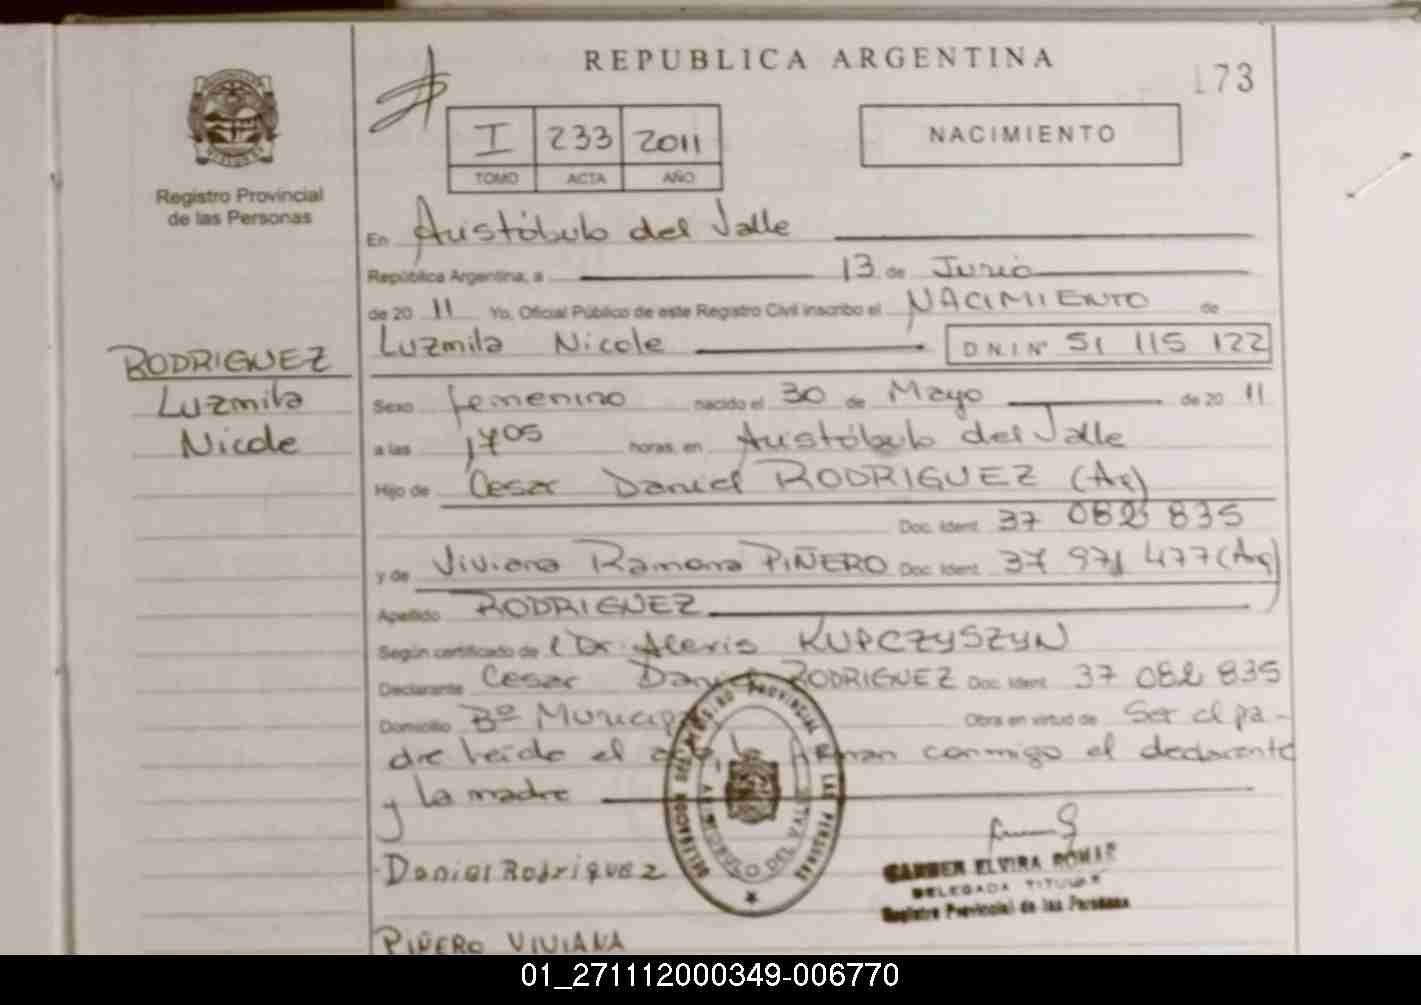 REPUBLICA ARGENTINA
173
Registro Provincial
de las Personas
I 233 2011
TOMO ACTA AÑO
NACIMIENTO
En Aristóbulo del Valle
República Argentina, a 13 de Junio
de 20 11 Yo, Oficial Público de este Registro Civil inscribo el NACIMIENTO de
Luzmila Nicole D N I Nº 51 115 122
RODRIGUEZ
Luzmila
Nicole
Sexo femenino nacido el 30 de Mayo de 20 11
a las 1705 horas, en Aristóbulo del Valle
Hijo de Cesar Daniel RODRIGUEZ (Ar)
Doc. Ident. 37 082 835
y de Viviana Ramona PIÑERO Doc. Ident. 37 971 477 (Arg)
Apellido RODRIGUEZ
Según certificado de Dr. Alexis KUPCZYSZYN
Declarante Cesar Daniel RODRIGUEZ Doc. Ident. 37 082 835
Domicilio Bº Obra en virtud de Ser el pa-
dre leído el firman conmigo el declarante
y la madre
DELEGACION DEL REGISTRO PROVINCIAL DE LAS PERSONAS
ARISTOBULO DEL VALLE
Daniel Rodriguez
CARMEN ELVIRA
DELEGADA TITULAR
Registro Provincial de las Personas
PIÑERO VIVIANA
01_271112000349-006770